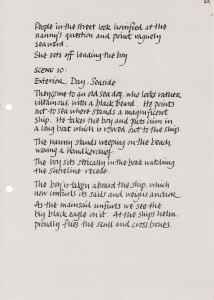 People in the street look horrified at the
nanny's question and point vaguely
seaward.
She sets off leading the boy
SCENE 10:
Exterior. Day. Seaside
They come to an old sea dog, who looks rather
villainous with a black beard. He points
out to sea where stands a magnificent
ship. He takes the boy and puts him in
a long boat which is rowed out to the ship.
The nanny stands weeping on the beach,
waving a handkerchief.
The boy sits stoically in the boat watching
the shoreline recede.
The boy is taken aboard the ship, which
now unfurls its sails and weighs anchor.
As the mainsail unfurls we see the
big black eagle on it. At the ships helm
proudly flies the scull and cross bones.